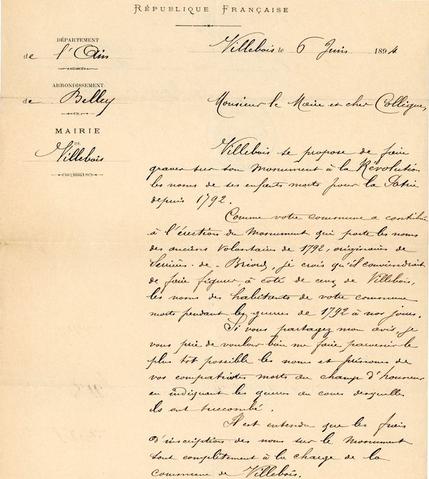 RÉPUBLIQUE FRANÇAISE
DÉPARTEMENT
de l'Ain
Villebois le 6 Juin 1894
ARRONDISSEMENT
de Belley
Monsieur le Maire et cher Collègue,
MAIRIE
DE
Villebois
Villebois se propose de faire
graver sur son Monument à la Révolution
les noms de ses enfants morts pour la Patrie
depuis 1792.
Comme votre commune a contribué
à l'érection du Monument qui porte les noms
des anciens Volontaires de 1792, originaires de
Serrières-de-Briord, je crois qu'il conviendrait
de faire figurer, à côté de ceux de Villebois,
les noms des habitants de votre commune
morts pendant les guerres de 1792 à nos jours.
Si vous partagez mon avis, je
vous prie de vouloir bien me faire parvenir le
plus tôt possible les noms et prénoms de
vos compatriotes morts au champ d'honneur
en indiquant les guerres au cours desquelles
ils ont succombé.
Il est entendu que les frais
d'inscription des noms sur le Monument
sont complètement à la charge de la
commune de Villebois.